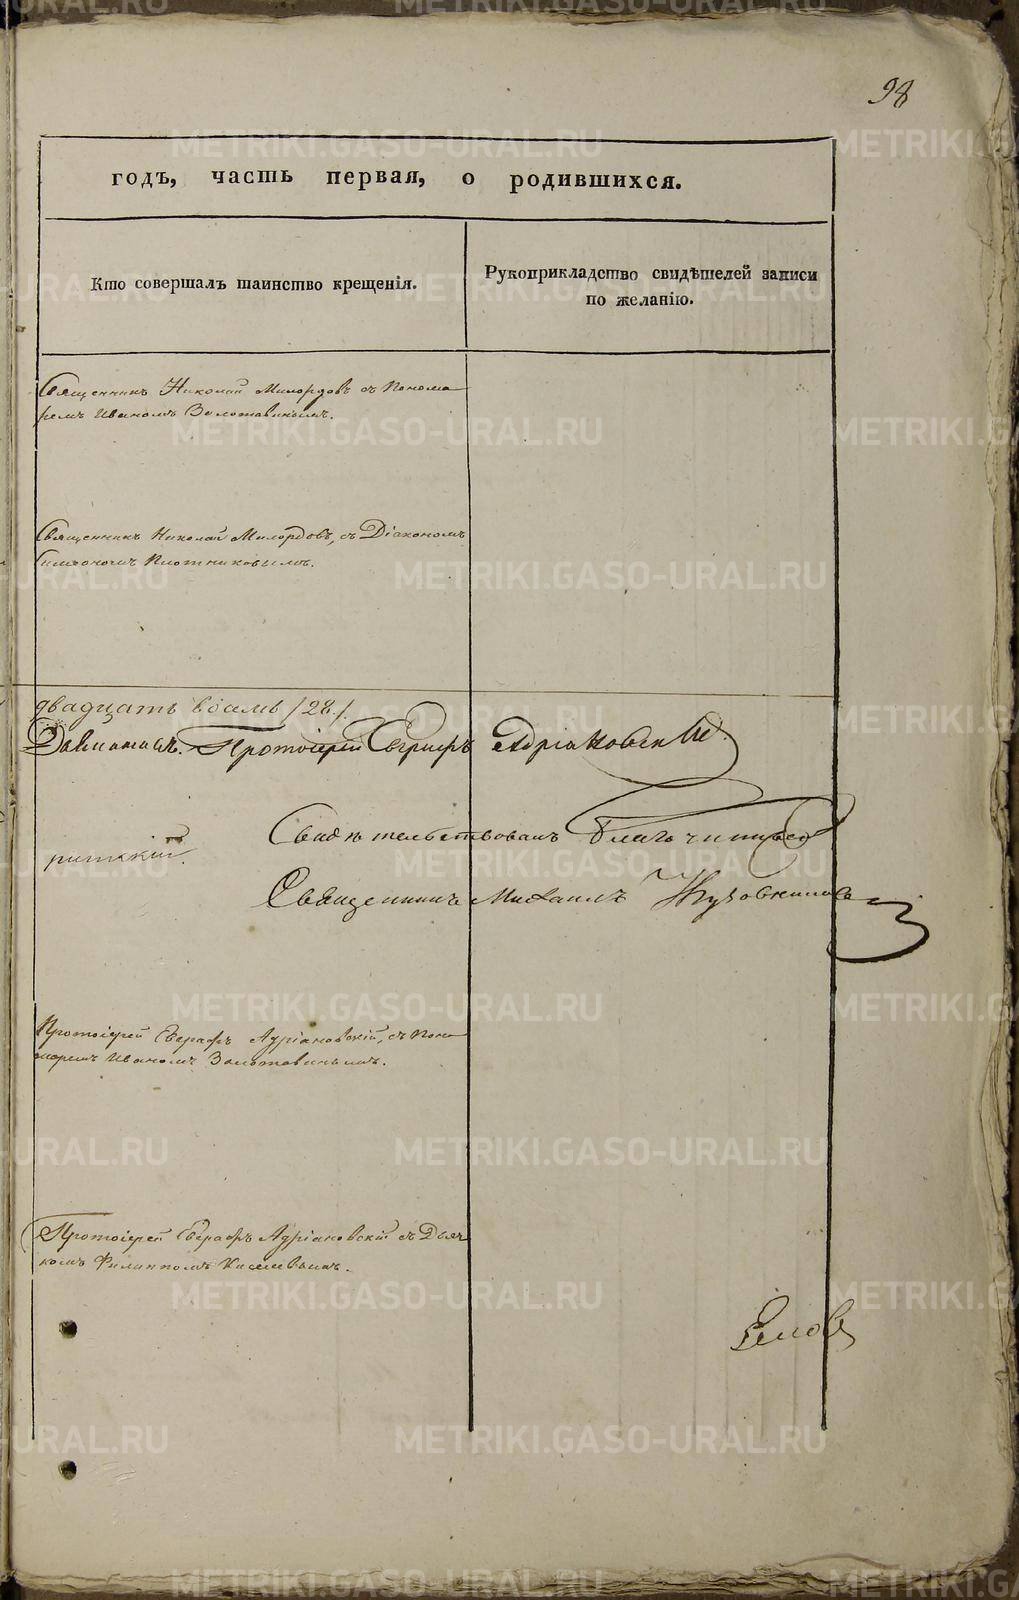 98
годъ, часть первая, о родившихся.
Кто совершалъ таинство крещенія.
Рукоприкладство свидѣтелей записи
по желанію.
Священникъ Николай Милордовъ съ Понома
ремъ Иваномъ Золотавинымъ.
Священникъ Николай Милордовъ, съ Діакономъ
Симеономъ Плотниковымъ.
двадцать восемь /28/.
Протоіерей Евграфъ Адріановскій
Свидѣтельствовалъ Благочинный
Священникъ Михаилъ
Протоіерей Евграфъ Адріановскій, съ Поно
маремъ Иваномъ Золотавинымъ.
Протоіерей Евграфъ Адріановскій съ Дьяч
комъ Филиппомъ Киселевымъ.
METRIKI.GASO-URAL.RU